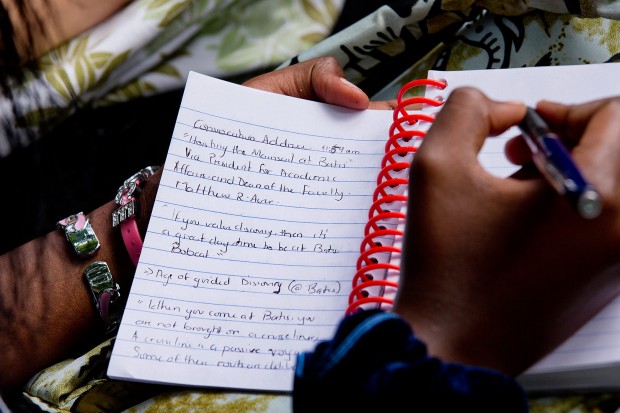 Convocation Address 11:54am
"Hoisting the at Bates"
Vice President for Academic
Affairs and Dean of the Faculty.
Matthew R. Auer.
"If you value discovery then it's
a great day time to be at Bates
Bobcat"
=> Age of guided Discovery (@ Bates)
"When you come at Bates, you
are not brought on a cruise liner
A cruise line is a passive voya
Some of them